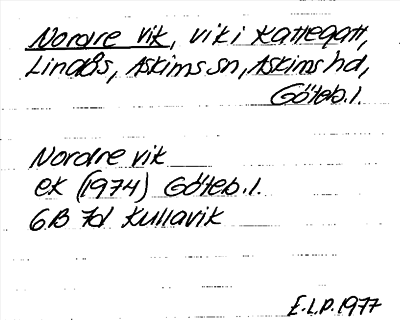 Nordre vik, vik i Kattegatt,
Lindås, Askims sn, Askims hd,
Göteb. l.
Nordre vik
ek (1974) Göteb. l.
6B 7d Kullavik
E.L.P. 1977